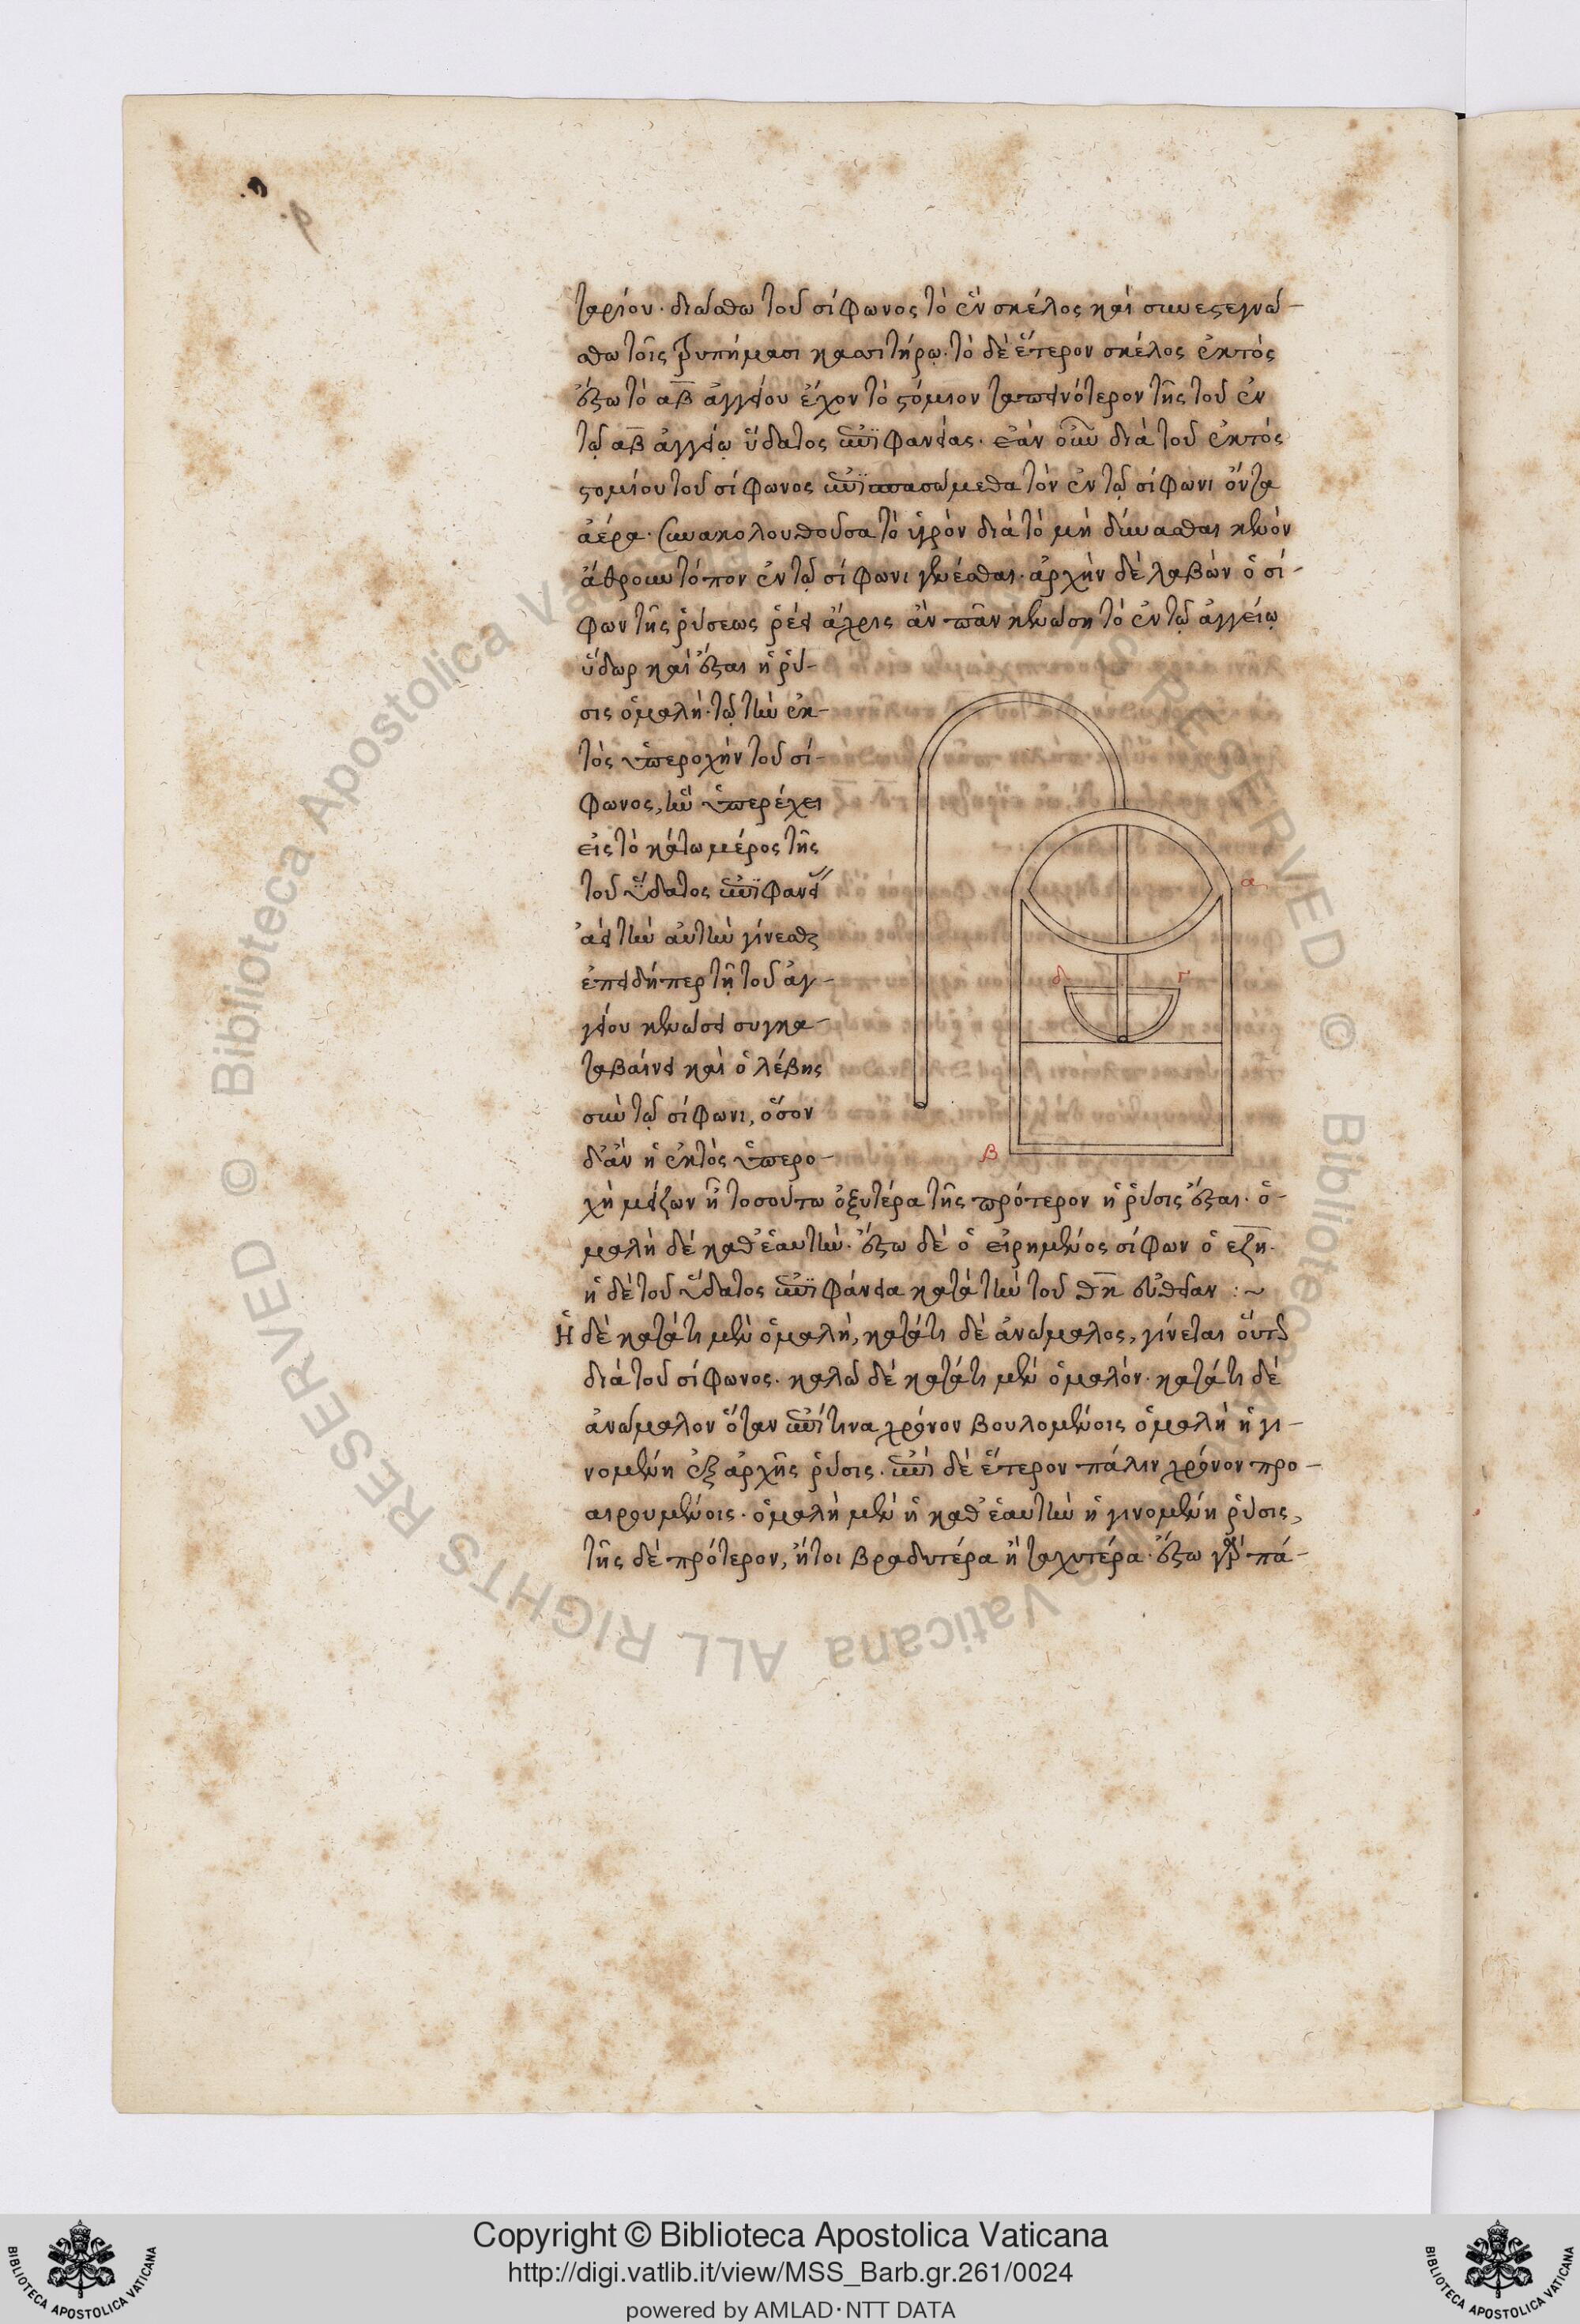 ταρίου. διώσθω τοῦ σίφωνος τὸ ἓν σκέλος καὶ συνεστεγνώ-
σθω τοῖς τρυπήμασι κασσιτήρῳ. τὸ δὲ ἕτερον σκέλος ἐκτὸς
ἔστω τὸ αβ ἀγγείου ἔχον τὸ στόμιον ταπεινότερον τῆς τοῦ ἐν
τῷ αβ ἀγγείῳ ὕδατος ἐπιφανείας. ἐὰν οὖν διὰ τοῦ ἐκτὸς
στομίου τοῦ σίφωνος ἐπισπασώμεθα τὸν ἐν τῷ σίφωνι ὄντα
ἀέρα. συνακολουθοῦσα τὸ ὑγρὸν διὰ τὸ μὴ δύνασθαι κενὸν
ἄθρουν τόπον ἐν τῷ σίφωνι γενέσθαι. ἀρχὴν δὲ λαβὼν ὁ σί-
φων τῆς ῥύσεως ῥέει ἄχρις ἂν πᾶν κενώσῃ τὸ ἐν τῷ ἀγγείῳ
ὕδωρ καὶ ἔσται ἡ ῥύ-
σις ὁμαλὴ. τῷ τὴν ἐκ-
τὸς ὑπεροχὴν τοῦ σί-
φωνος, ἣν ὑπερέχει
εἰς τὸ κάτω μέρος τῆς
τοῦ ὕδατος ἐπιφανεί
ἀεὶ τὴν αὐτὴν γίνεσθαι
ἐπειδήπερ τῇ τοῦ ἀγ-
γείου κενώσει συγκα-
ταβαίνει καὶ ὁ λέβης
σὺν τῷ σίφωνι, ὅσον
δ' ἂν ἡ ἐκτὸς ὑπερο-
χὴ μείζων ᾖ τοσούτω ὀξυτέρα τῆς πρότερον ἡ ῥύσις ἔσται. ὁ-
μαλὴ δὲ καθ' ἑαυτὴν. ἔστω δὲ ὁ εἰρημένος σίφων ὁ εζη.
ἡ δὲ τοῦ ὕδατος ἐπιφάνεια κατὰ τὴν τοῦ θκ εὐθεῖαν :~
Ἡ δὲ κατάτι μὲν ὁμαλὴ, κατάτι δὲ ἀνώμαλος, γίνεται οὕτως
διὰ τοῦ σίφωνος. καλῶ δὲ κατάτι μὲν ὁμαλόν. κατάτι δὲ
ἀνώμαλον ὅταν ἐπί τινα χρόνον βουλομένοις ὁμαλὴ ἡ γι-
νομένη ἐξ ἀρχῆς ῥύσις. ἐπὶ δὲ ἕτερον πάλιν χρόνον προ-
αιρουμένοις. ὁμαλὴ μὲν ἡ καθ' ἑαυτὴν ἡ γινομένη ῥύσις,
τῆς δὲ πρότερον, ἤτοι βραδυτέρα ἢ ταχυτέρα. ἔστω γὰρ πά-
α
δ γ
β
© Biblioteca Apostolica Vaticana ALL RIGHTS RESERVED
Copyright © Biblioteca Apostolica Vaticana
http://digi.vatlib.it/view/MSS_Barb.gr.261/0024
powered by AMLAD·NTT DATA
BIBLIOTECA APOSTOLICA VATICANA
BIBLIOTECA APOSTOLICA VATICANA